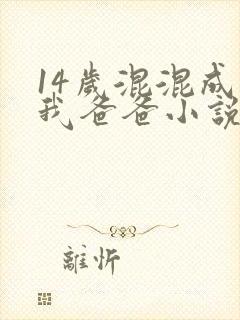 14歲混混成
我爸爸小說
離忻